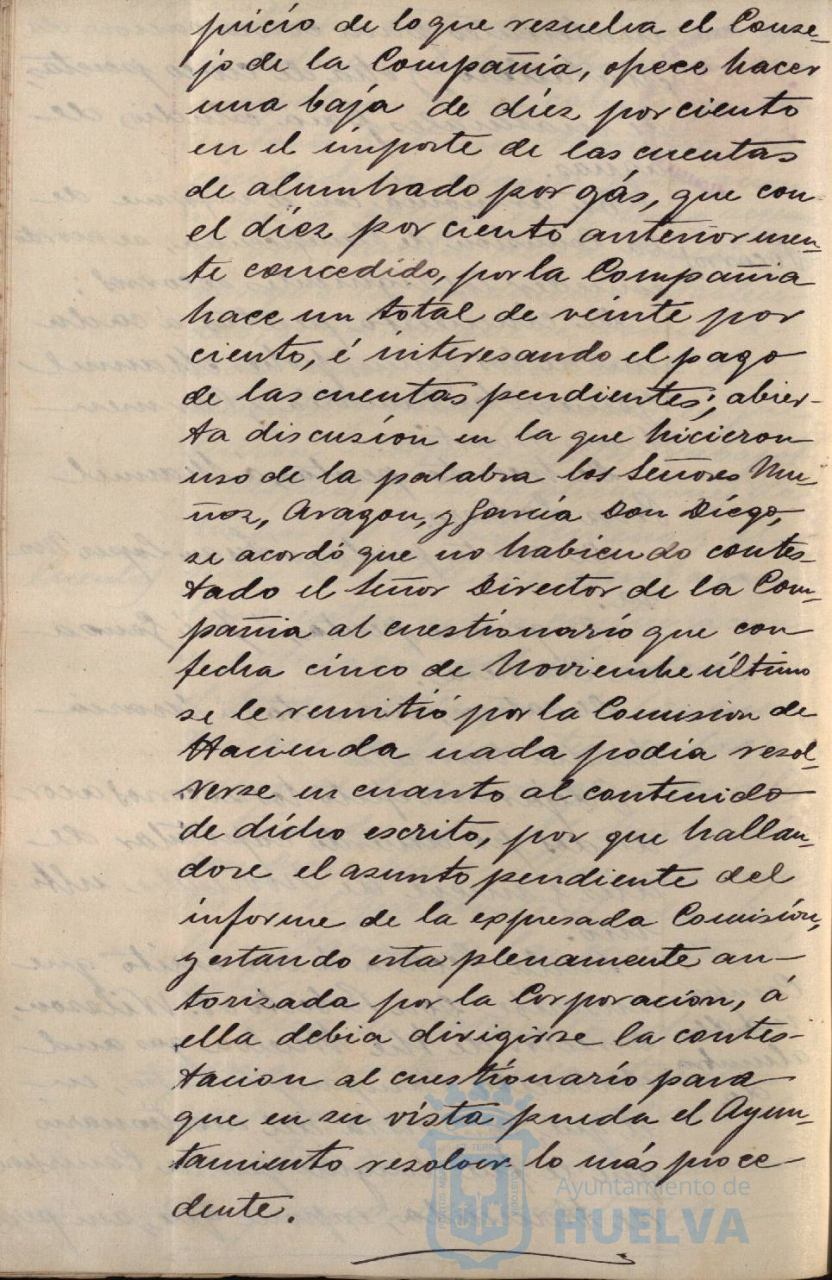 juicio de lo que resuelva el Conse-
jo de la Compañia, ofrece hacer
una baja de diez por ciento
en el importe de las cuentas
de alumbrado por gás, que con
el diez por ciento anteriormen-
te concedido, por la Compañia
hace un total de veinte por
ciento, é interesando el pago
de las cuentas pendientes; abier-
ta discusion en la que hicieron
uso de la palabra los Señores Mu-
ñoz, Aragon, y García Don Diego,
se acordó que no habiendo contes-
tado el Señor Director de la Com-
pañia al cuestionario que con
fecha cinco de Noviembre último
se le remitió por la Comision de
Hacienda nada podia resol-
verse en cuanto al contenido
de dicho escrito, por que hallan-
dose el asunto pendiente del
informe de la expresada Comisión,
y estando esta plenamente au-
torizada por la Corporacion, á
ella debia dirigirse la contes-
tacion al cuestionario para
que en su vista pueda el Ayun-
tamiento resolver lo más proce-
dente.
Ayuntamiento de
HUELVA